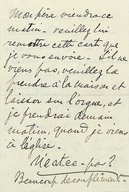 Mon père viendra ce
matin. veuillez lui
remettre cette carte que
je vous envoie. S'il ne
viens pas, veuillez la
prendre à la maison et
laisser sur l'orgue, et
je prendrai demain
matin, quand je viens
à l'église.
N'est-ce-pas?
Beaucoup de compliments.